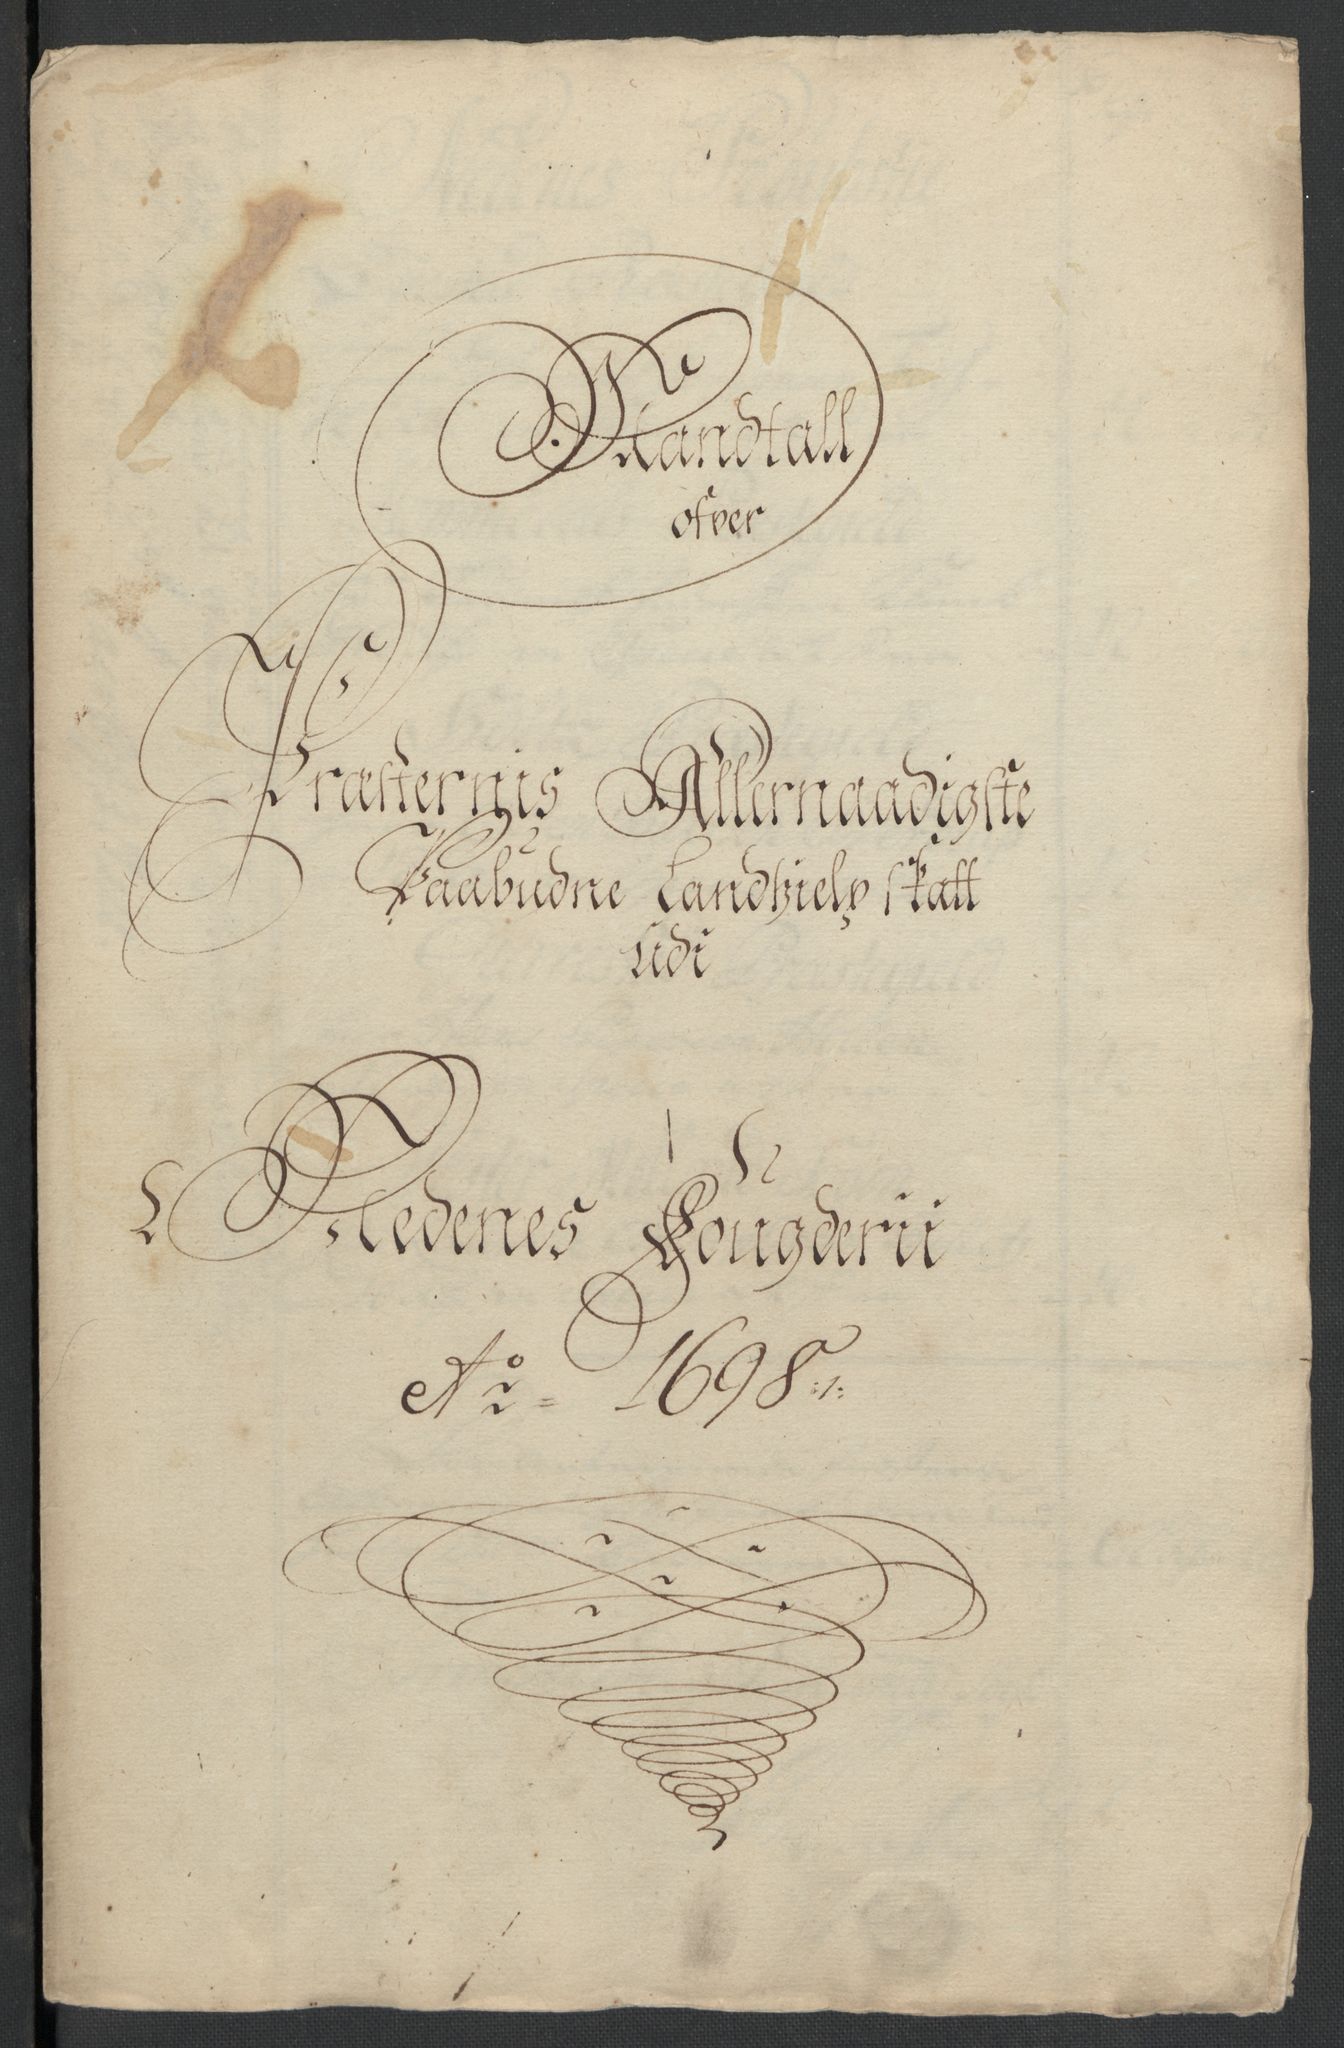 Mandtall
ofver
Præsternis Allernaadigste
Paabudne Landhielp skatt
udi
Nedenes Fougderii
Ao 1698